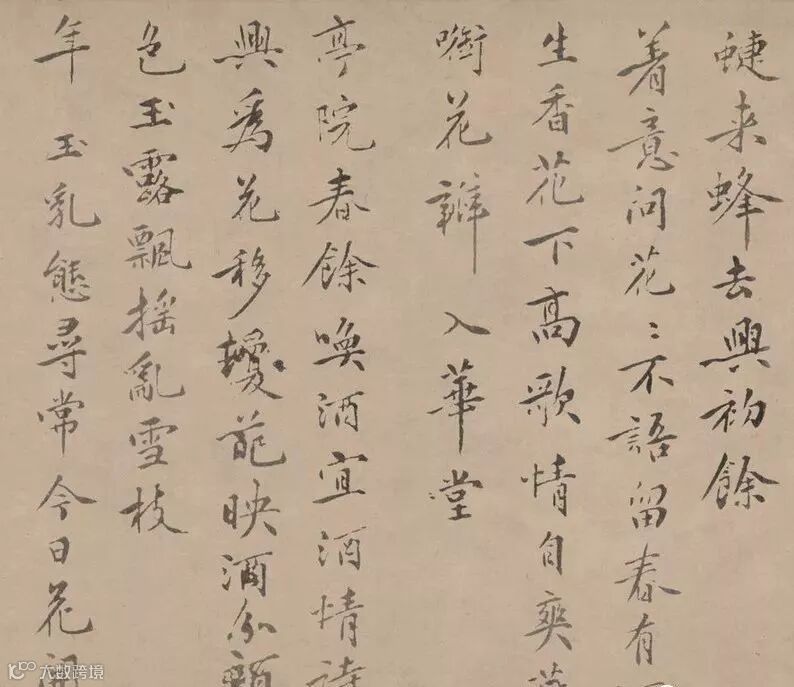 蜨来蜂去興初餘
着意问花〻不語留春有
生香花下高歌情自爽
啣花瓣入華堂
亭院春餘喚酒宜酒情詩
興為花移攓葩映酒分顏
色玉露飄摇亂雪枝
年玉乳態尋常今日花
大数跨境